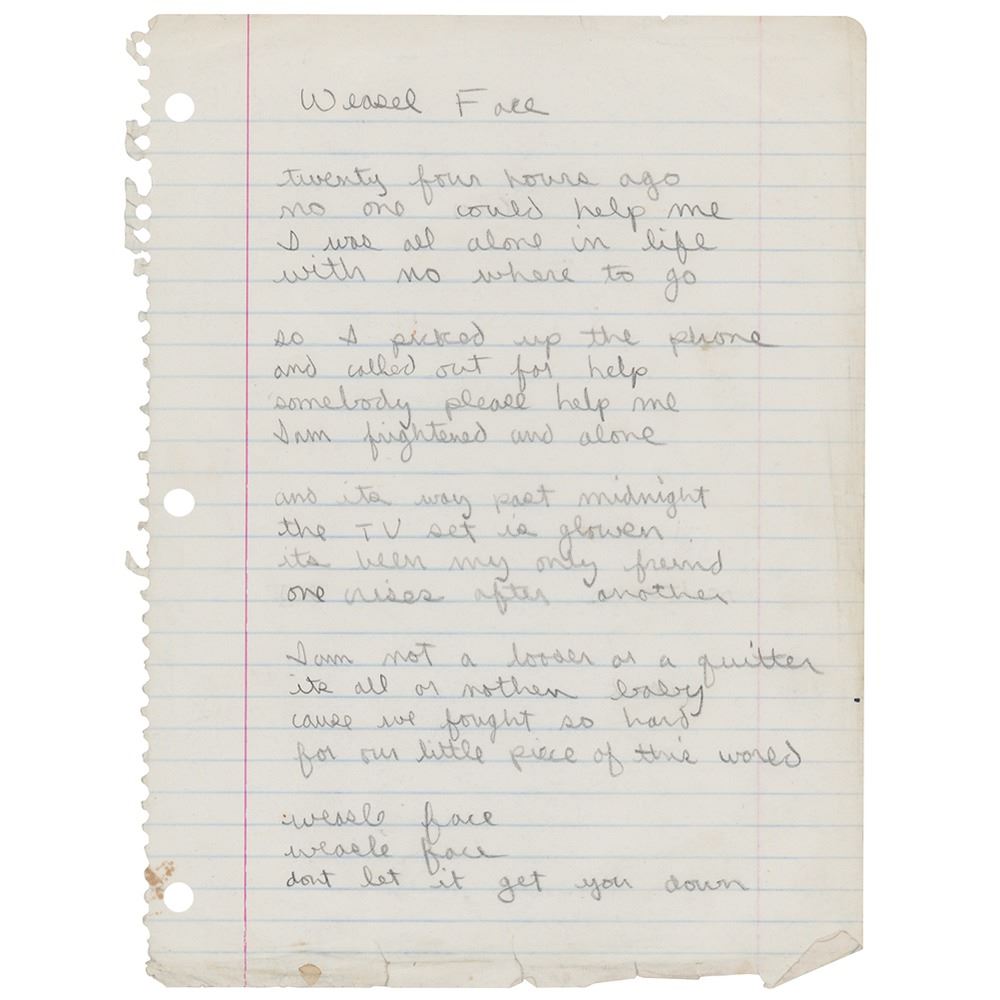 Weasel Face
twenty four hours ago
no one could help me
I was all alone in life
with no where to go
so I picked up the phone
and called out for help
somebody please help me
I am frightened and alone
and its way past midnight
the TV set is glowen
its been my only freind
one crises after another
I am not a looser or a quitter
its all or nothen baby
cause we fought so hard
for our little piece of this world
weasle face
weasle face
dont let it get you down